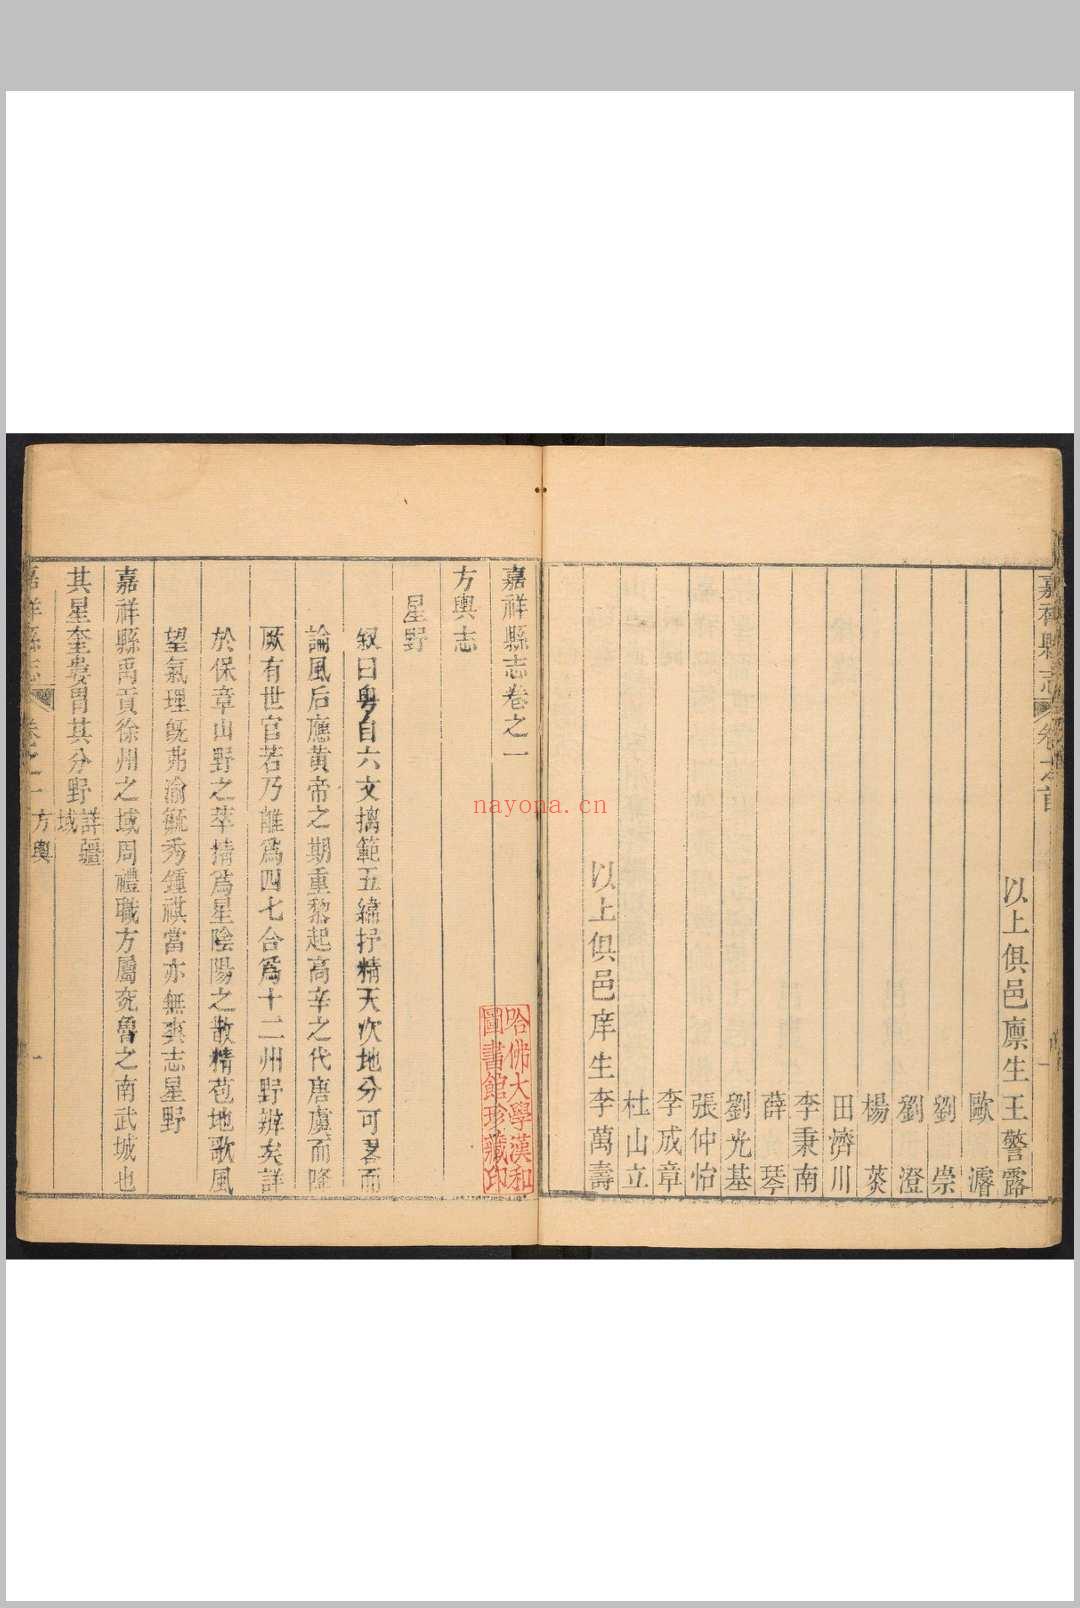 嘉祥縣志 卷之首
王警露
以上俱邑廪生
歐濬
劉崇
劉澄
楊葵
田濟川
李秉南
薛琴
劉光基
張仲怡
李成章
杜山立
李萬壽
以上俱邑庠生
嘉祥縣志卷之一
方輿志
星野
叙曰粤自六文摛範五緯抒精天次地分可畧而
論風后應黄帝之期重黎起高辛之代唐虞而降
厥有世官若乃離爲四七合爲十二州野辨矣詳
於保章山野之萃精爲星陰陽之散精苞地歌風
望氣理旣弗渝毓秀鍾祺當亦無爽志星野
嘉祥縣禹貢徐州之域周禮職方屬兖魯之南武城也
其星奎婁胃其分野詳疆域
嘉祥縣志 卷之一 方輿 一
哈佛大學漢和
圖書館珍藏印
nayona.cn